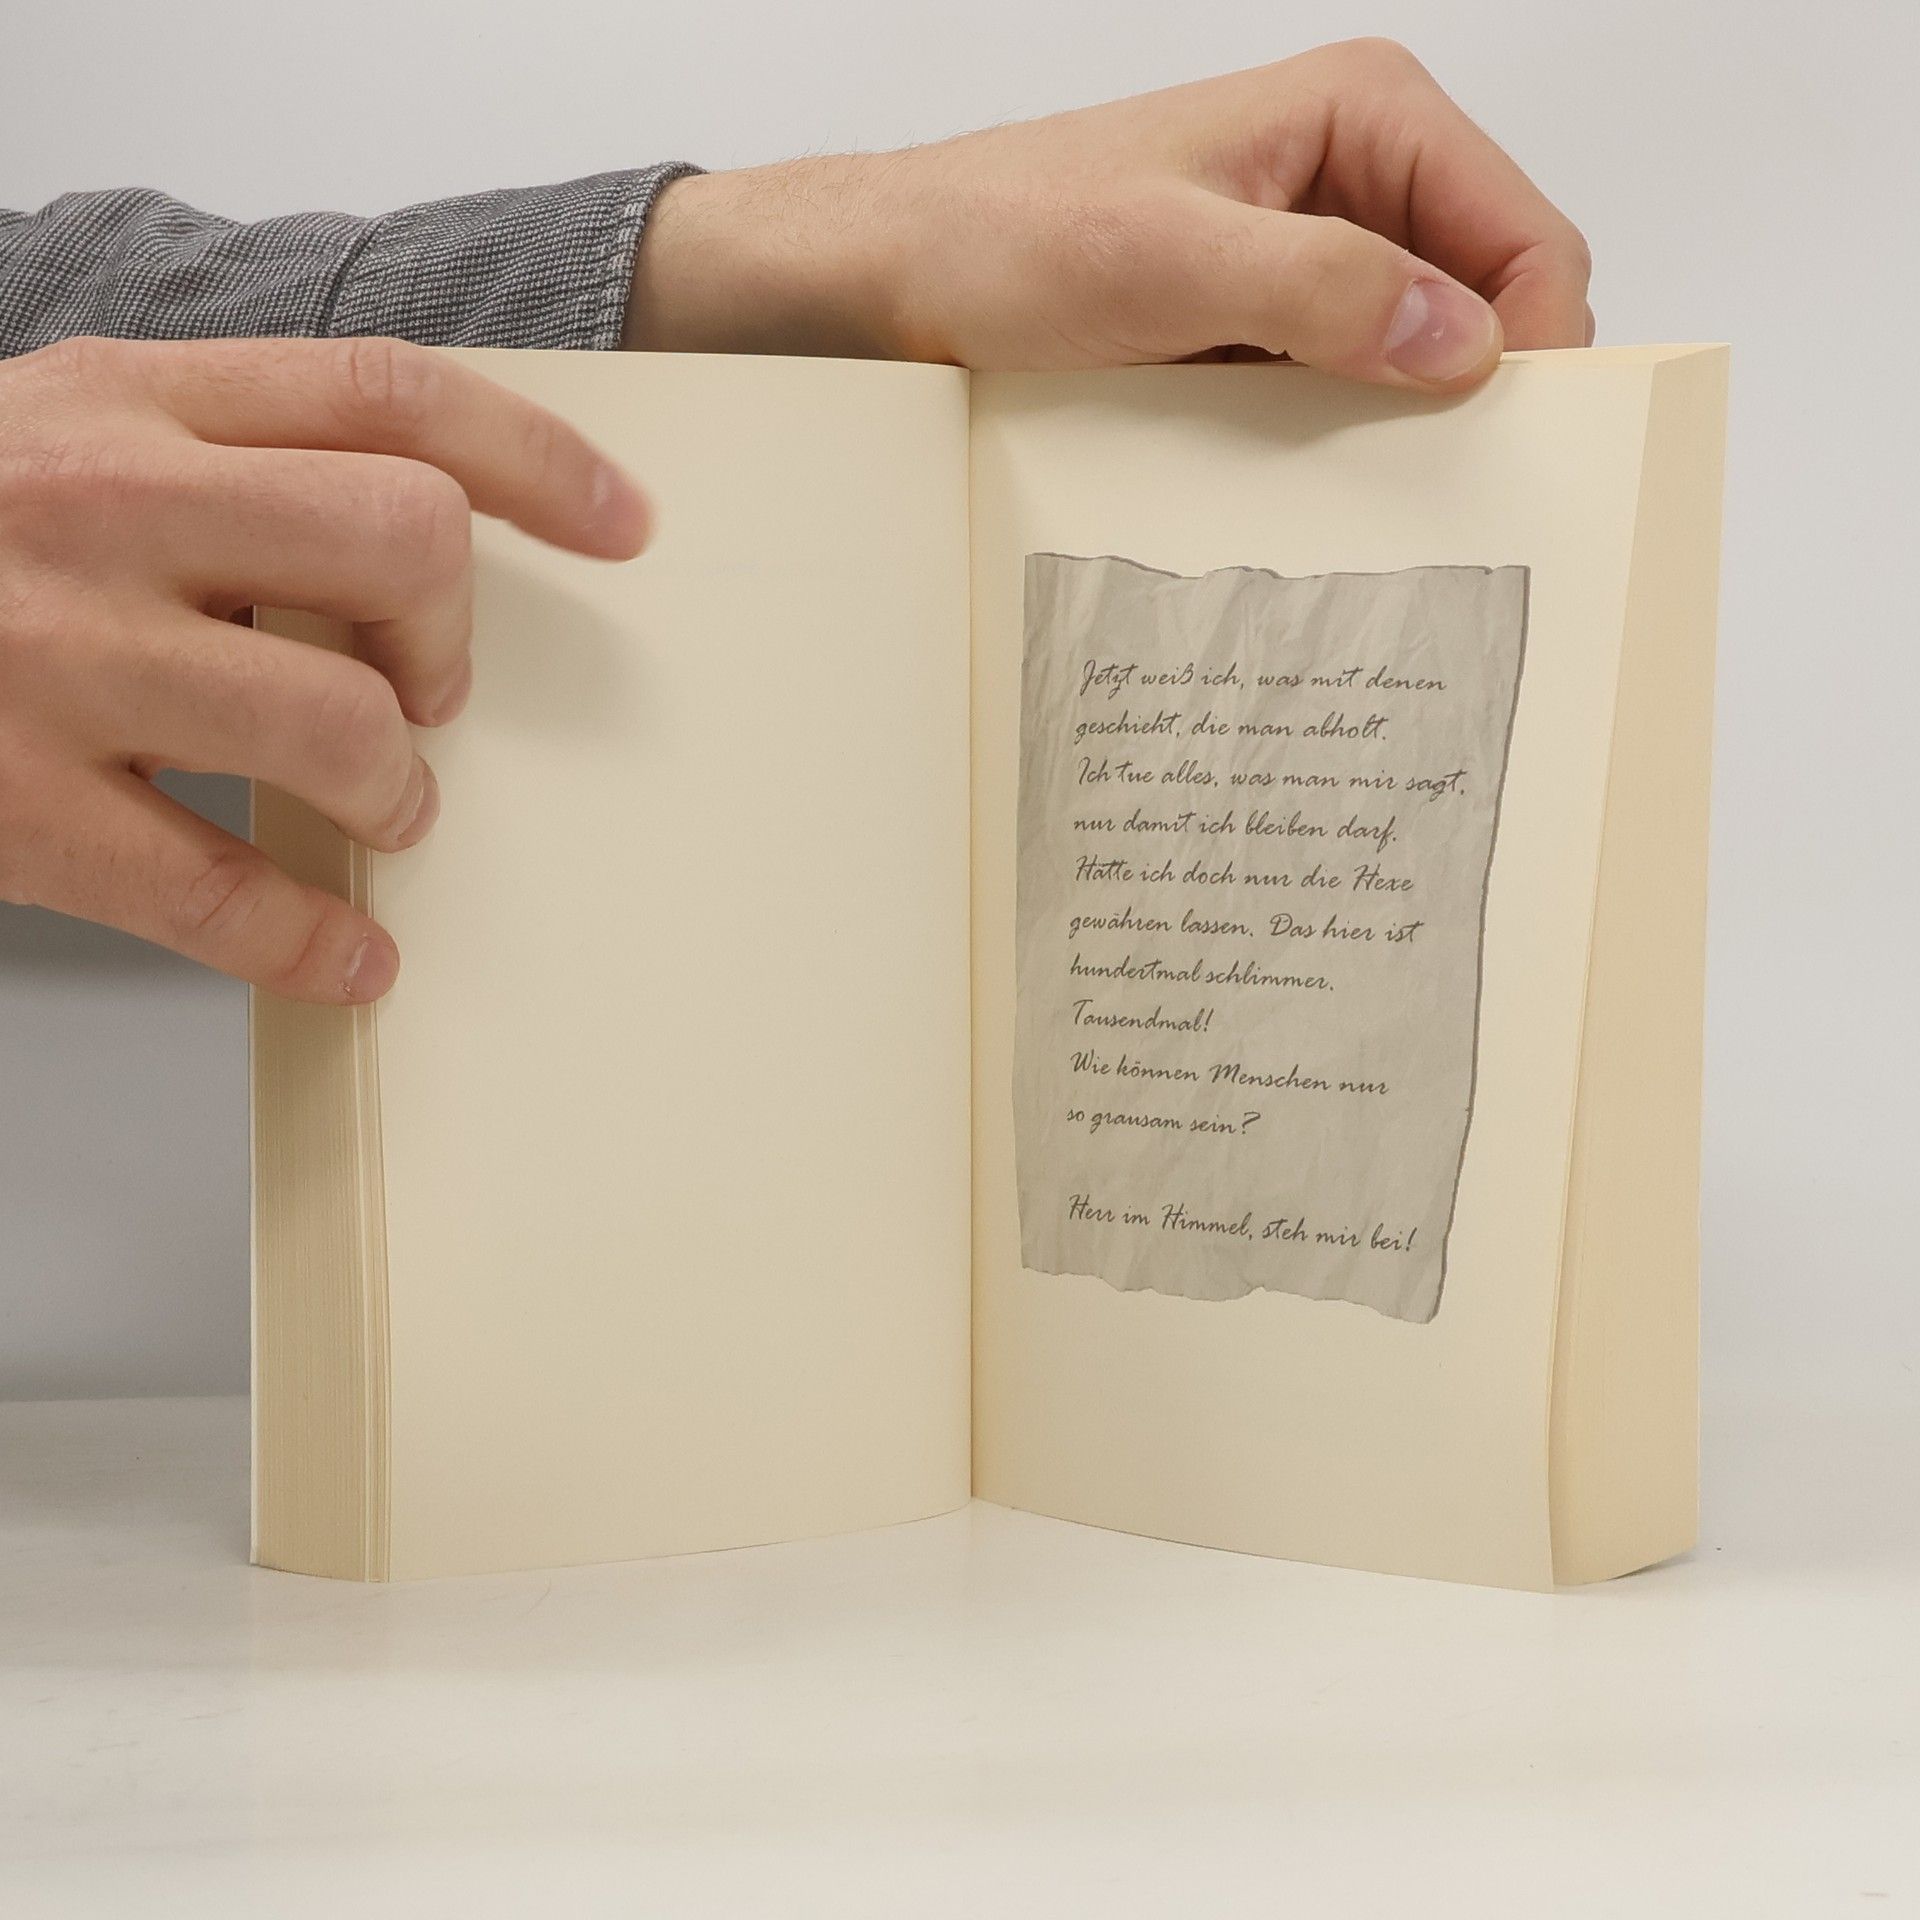 Jetzt weiß ich, was mit denen
geschieht, die man abholt.
Ich tue alles, was man mir sagt,
nur damit ich bleiben darf.
Hätte ich doch nur die Hexe
gewähren lassen. Das hier ist
hundertmal schlimmer.
Tausendmal!
Wie können Menschen nur
so grausam sein?
Herr im Himmel, steh mir bei!